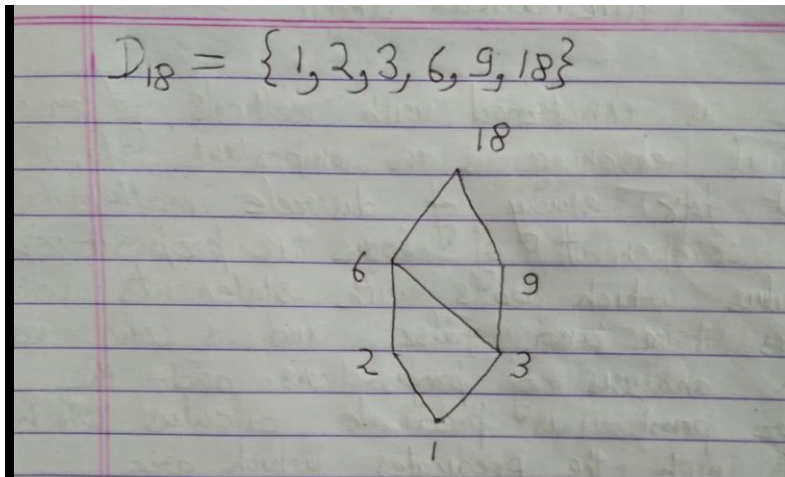 D₁₈ = {1, 2, 3, 6, 9, 18}
18
6
9
2
3
1